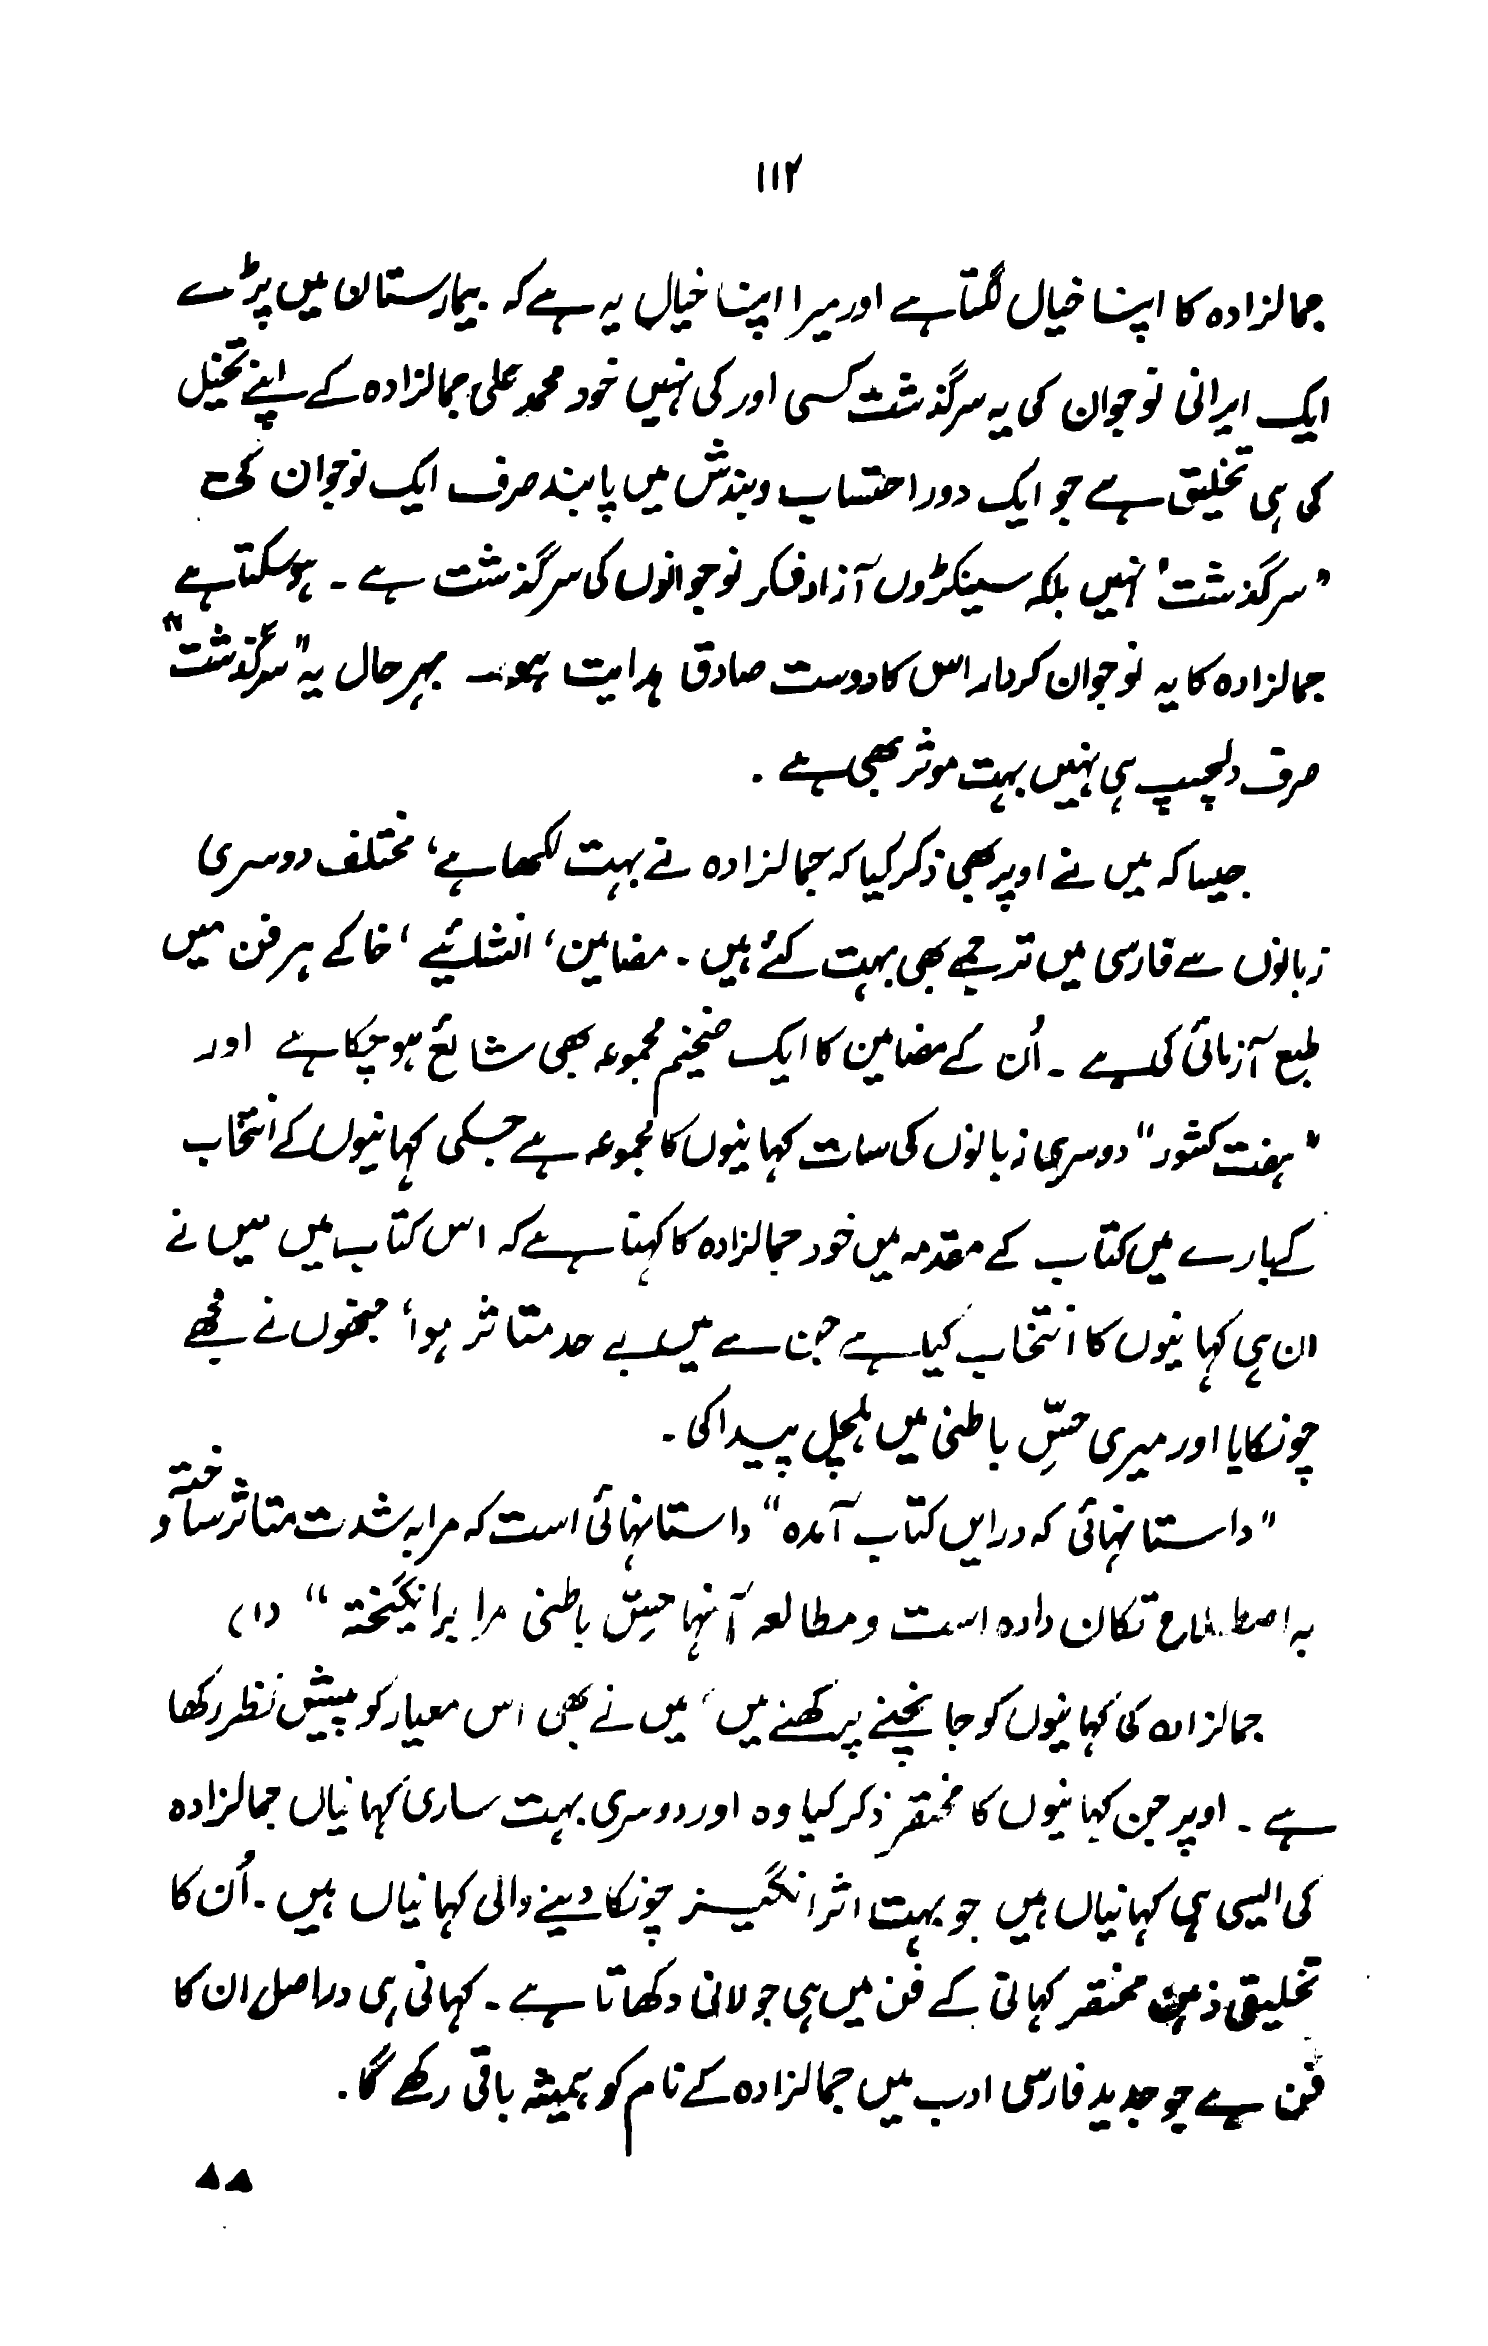 ۱۱۲
جمالزادہ کا اپنا خیال لگتا ہے اور میرا اپنا خیال یہ ہے کہ بیمارستان میں پڑے
ایک ایرانی نوجوان کی یہ سرگذشت کسی اور کی نہیں خود محمد علی جمالزادہ کے اپنے تخیل
کی ہی تخلیق ہے جو ایک دور احتساب و بندش میں پابند صرف ایک نوجوان کی
"سرگذشت" نہیں بلکہ سینکڑوں آزاد فکر نوجوانوں کی سرگذشت ہے ۔ ہو سکتا ہے
جمالزادہ کا یہ نوجوان کردار اس کا دوست صادق ہدایت ہو۔ بہر حال یہ "سرگذشت"
صرف دلچسپ ہی نہیں بہت موثر بھی ہے ۔
جیسا کہ میں نے اوپر بھی ذکر کیا کہ جمالزادہ نے بہت لکھا ہے، مختلف دوسری
زبانوں سے فارسی میں ترجمے بھی بہت کئے ہیں ۔ مضامین، انشائیے، خاکے ہر فن میں
طبع آزمائی کی ہے ۔ اُن کے مضامین کا ایک ضخیم مجموعہ بھی شائع ہو چکا ہے اور
"ہفت کشور" دوسری زبانوں کی سات کہانیوں کا مجموعہ ہے جسکی کہانیوں کے انتخاب
کے بارے میں کتاب کے مقدمہ میں خود جمالزادہ کا کہنا ہے کہ اس کتاب میں میں نے
ان ہی کہانیوں کا انتخاب کیا ہے جن سے میں بے حد متاثر ہوا، جنھوں نے مجھے
چونکایا اور میری حسِّ باطنی میں ہلچل پیدا کی ۔
"داستانہائی کہ دراین کتاب آمدہ" داستانہائی است کہ مرا بہ شدت متاثر ساختہ و
بہ اصطلاح تکان دادہ است و مطالعہ آنہا حسِّ باطنی مرا برانگیختہ" (۱)
جمالزادہ کی کہانیوں کو جانچنے پرکھنے میں، میں نے بھی اس معیار کو پیش نظر رکھا
ہے ۔ اوپر جن کہانیوں کا مختصر ذکر کیا وہ اور دوسری بہت ساری کہانیاں جمالزادہ
کی ایسی ہی کہانیاں ہیں جو بہت اثر انگیز چونکا دینے والی کہانیاں ہیں ۔ اُن کا
تخلیقی ذہن مختصر کہانی کے فن میں ہی جولانی دکھاتا ہے ۔ کہانی ہی دراصل ان کا
فن ہے جو جدید فارسی ادب میں جمالزادہ کے نام کو ہمیشہ باقی رکھے گا ۔